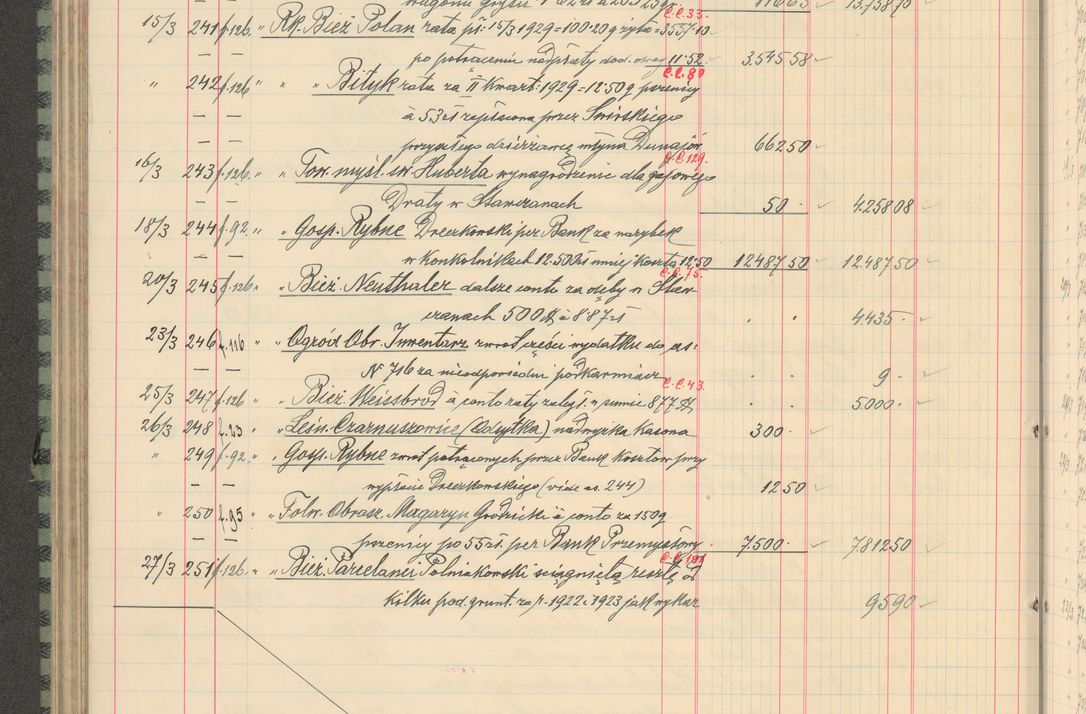 C.C.33.
15/3 241 f.126. " Rk. Bież Polan rata pł. 15/3 1929 = 100·20 q żyta = 3557·10
— — po potrąceniu nadpłaty dod. 11·52. 3.545 58
C.C.80
" 242 f.126 " " " Bityk rata za II Kwart. 1929 = 12·50 q pszenicy
— — à 53 zł zapłacona przez Świrskiego
— — przyszłego dzierżawcę młyna Dunajów 662 50
C.C.129.
16/3 243 f.126. " " Tow. myśl. św. Huberta wynagrodzenie dla gajowego
— — Draty w Stawczanach 50 · 4.258 08
18/3 244 f.92. " " Gosp. Rybne Dreczkowski per Bank za narybek
— — w Konkolnikach 12.500 zł mniej koszta 12.50 12487 50 12.487 50
C.C.75.
20/3 245 f.126 " " Bież. Neuthaler dalsze conto za dęby w Staw-
czanach 500 à 8·87 zł · · 4.435 ·
23/3 246 f.116 " " Ogród Obr. Inwentarz zwrot części wydatku do as:
— — № 716 za nieodpowiedni podkarmiacz · · 9 ·
C.C.43.
25/3 247 f.126 " " Bież. Weissbrod a conto raty zaległ. w sumie 877 · · 5.000 ·
26/3 248 f.23 " " Leśn. Czarnuszowice (Odsyłka) nadwyżka Kasowa 300 ·
" 249 f.92. " " Gosp. Rybne zwrot potrąconych przez Bank kosztów przy
— — wypłacie Dreczkowskiego (vide as. 244) 12 50
" 250 f.95 " " Folw. Obrosz. Magazyn Gródzicki à conto za 150 q
— — pszenicy po 55 zł. per Bank Przemysłowy 7.500 · 7.812 50
27/3 251 f.126. " " Bież. Parcelanci Polniakowski ściągnięta resztę od
kilku pod. grunt. za r. 1922 i 1923 jak wykaz 95 90